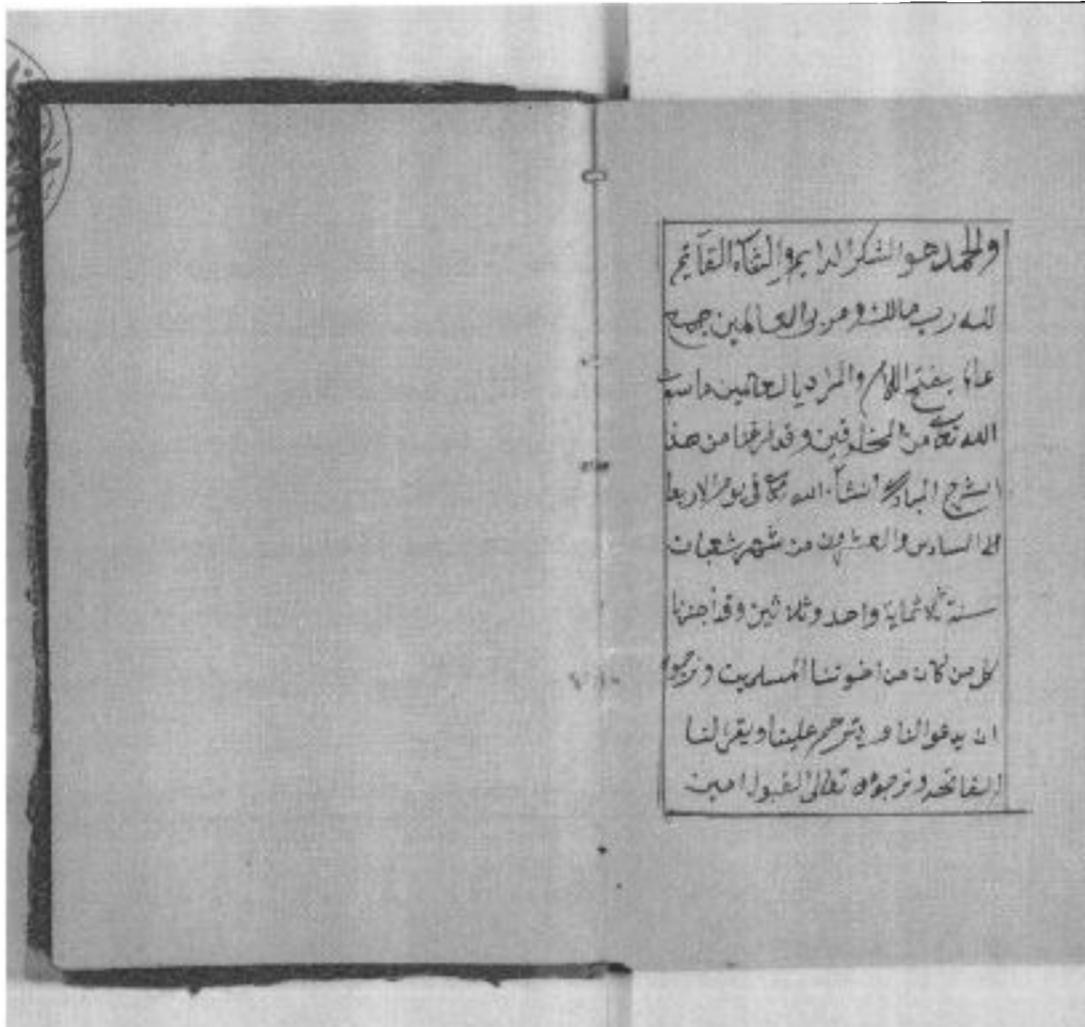 والحمد هو الشكر الدايم والثناء القايم
لله رب مالك ومربى العالمين جمع
عالم بفتح اللام والمراد بالعالمين ماسوى
الله تعالى من المخلوقين وقد فرغنا من هذا
الشرح المبارك انشاء الله تعالى فى يوم الاربعا
السادس والعشرون من شهر شعبان
سنة ثلاثماية واحد وثلاثين وقد اجزنا
كل من كان من اخوتنا المسلمين ونرجوا
ان يدعوا لنا ويترحم علينا ويقرا لنا
الفاتحه ونرجوه تعالى القبول امين